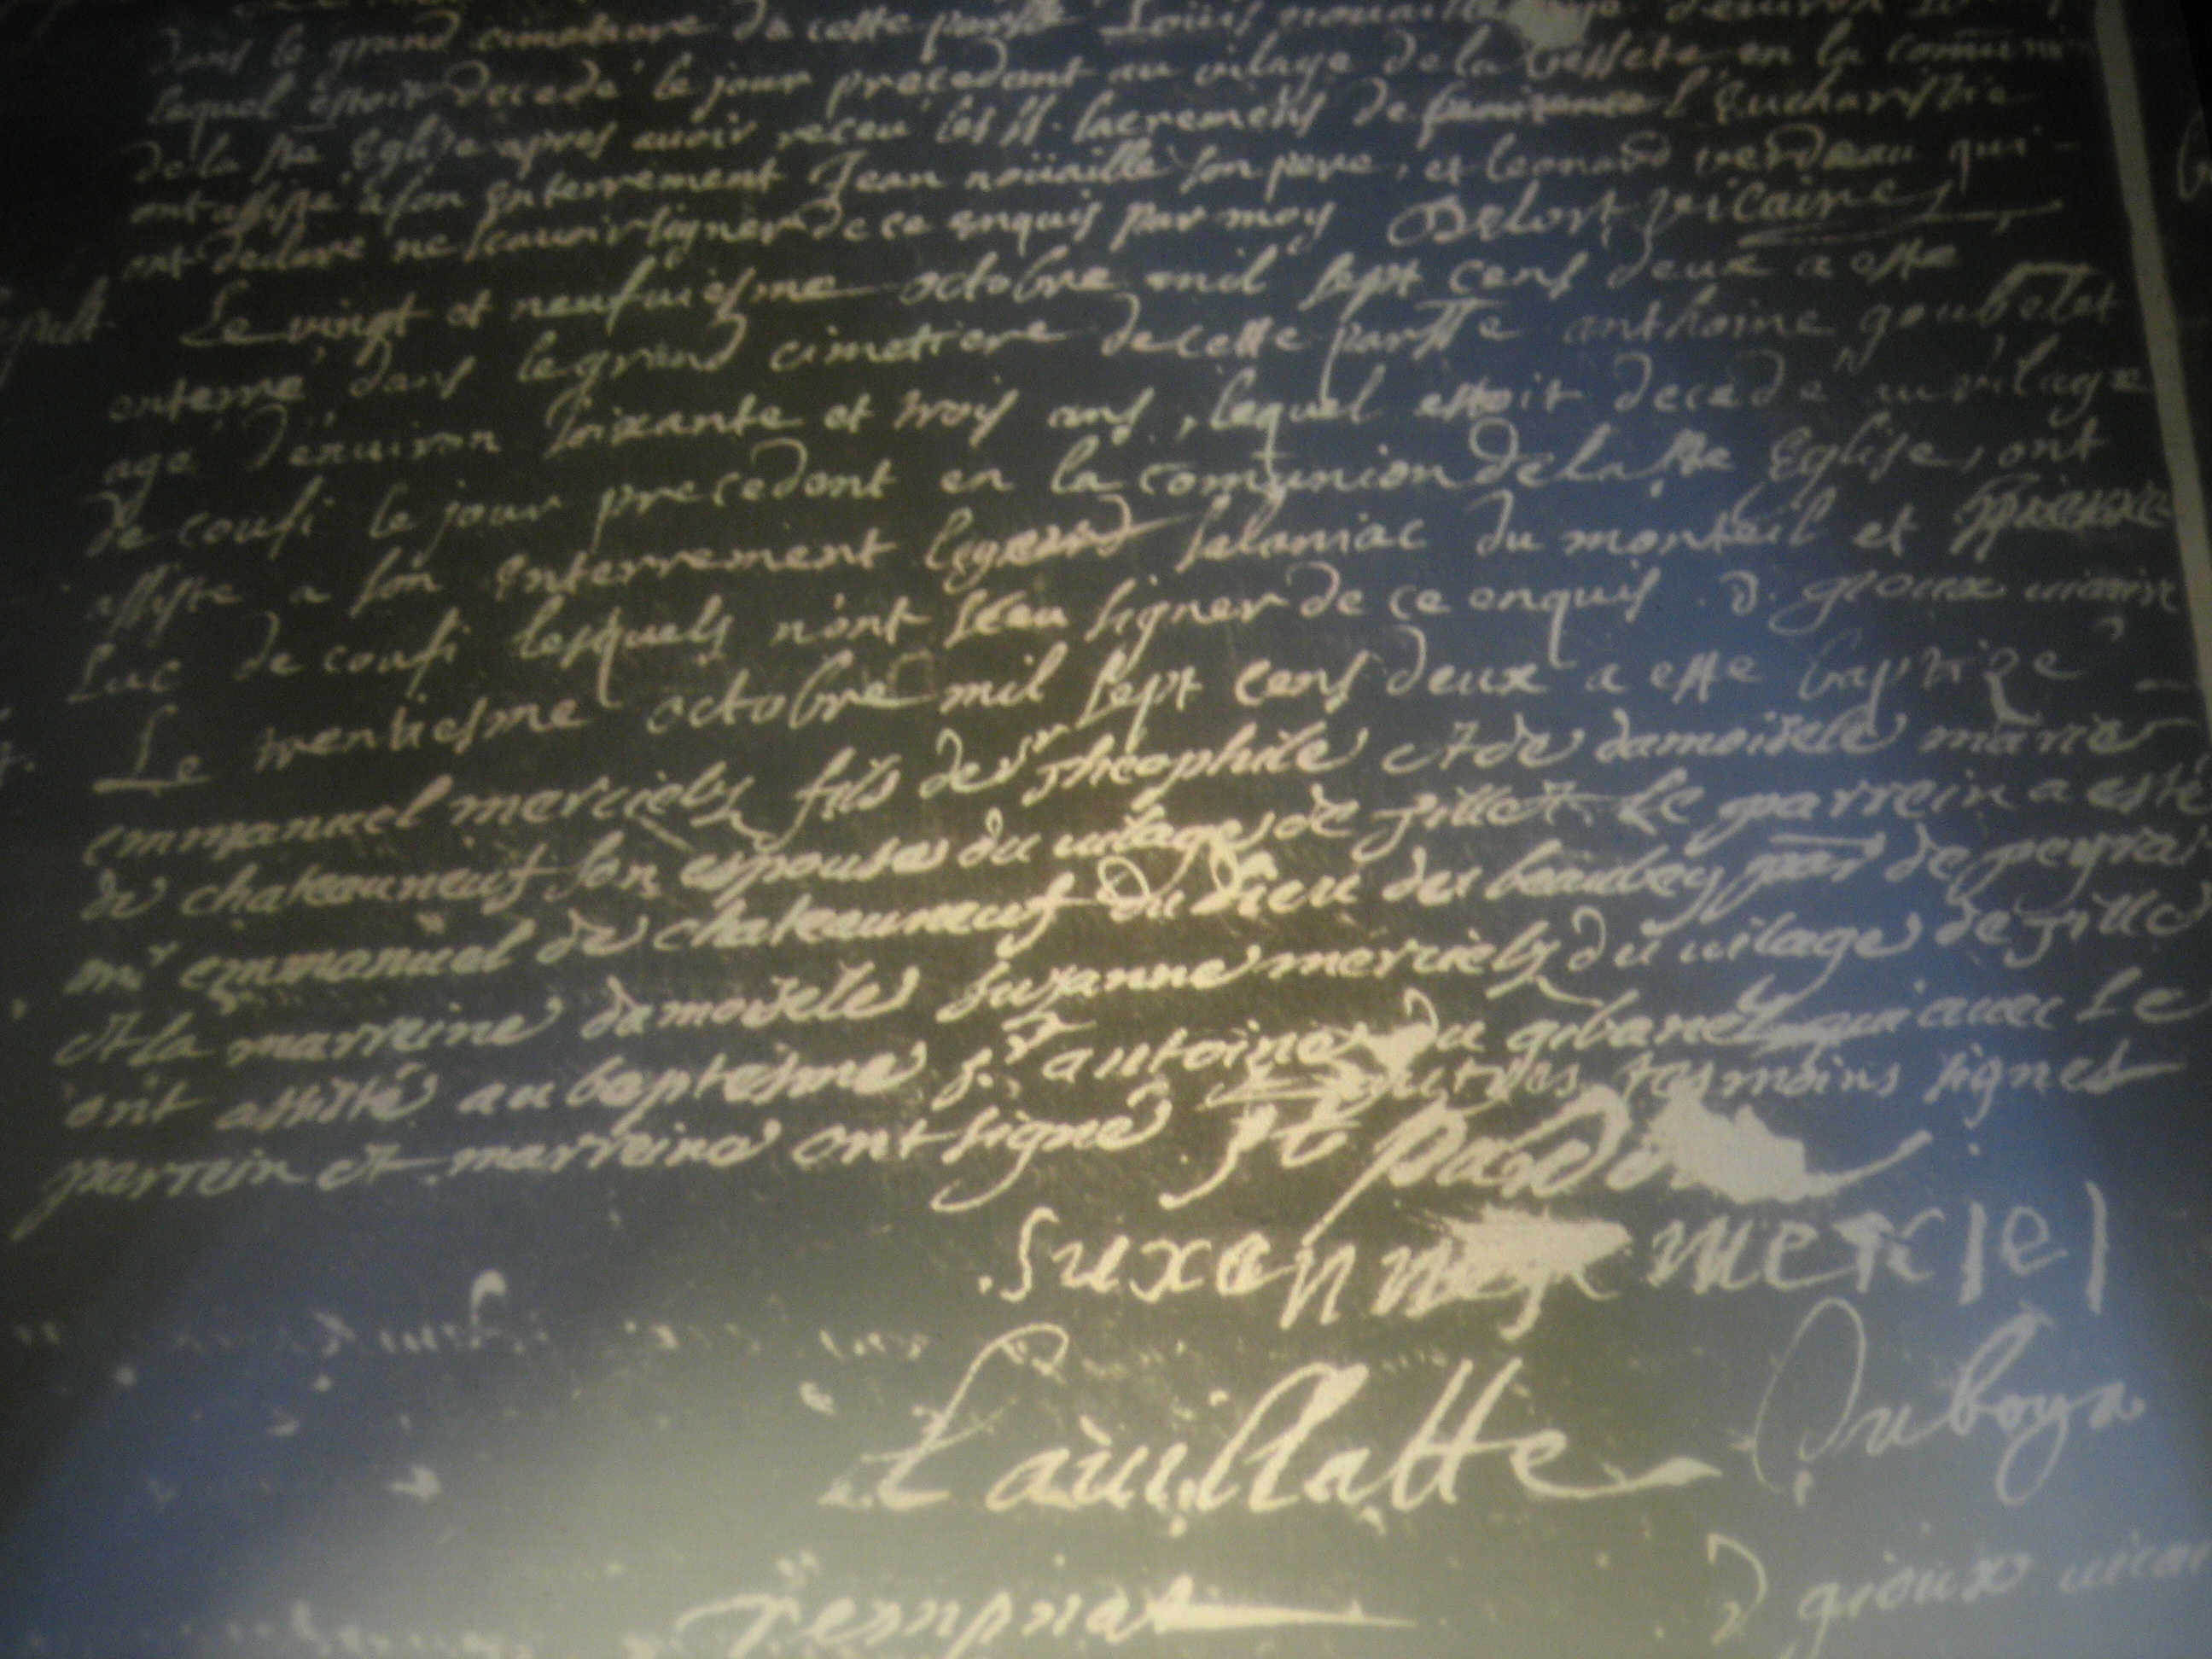 dans le grand cimetiere de cette parsse Louis nouaille age d'environ
lequel estoit decedé le jour precedent au vilage de la besseté en la comunion
de la ste Eglise apres avoir receu les SS. sacremens de l'Eucharistie
ont assisté a son Enterrement Jean noüaille son pere, et leonard verdeau qui
ont declaré ne scavoir signer de ce enquis par moy Delort vicaire
Le vingt et neufuiesme octobre mil sept cens deux a esté
enterré dans le grand cimetiere de cette parsse anthoine goubelet
agé d'enuiron soixante et trois ans, lequel estoit decedé au vilage
de coufi le jour precedent en la comunion de la ste Eglise, ont
assisté a son Enterrement salaniac du monteil et
Luc de coufi lesquels n'ont sceu signer de ce enquis. D. gioux vicaire
Le trentiesme octobre mil sept cens deux a esté baptizé
emmanuel merciels fils de sr Theophile et de damoisele marie
de chateauneuf son espouse du uilage de fillet. Le parrein a esté
mr emmanuel de chateauneuf du lieu de de peyra
et la marreine damoisele suzanne merciels du uilage de fille
ont assisté au baptesme sr antoine du gibanel qui auec Le
parrein et marreine ont signé tesmoins signes
suxanne merciel
Lauillatte Duboys
D gioux uicai